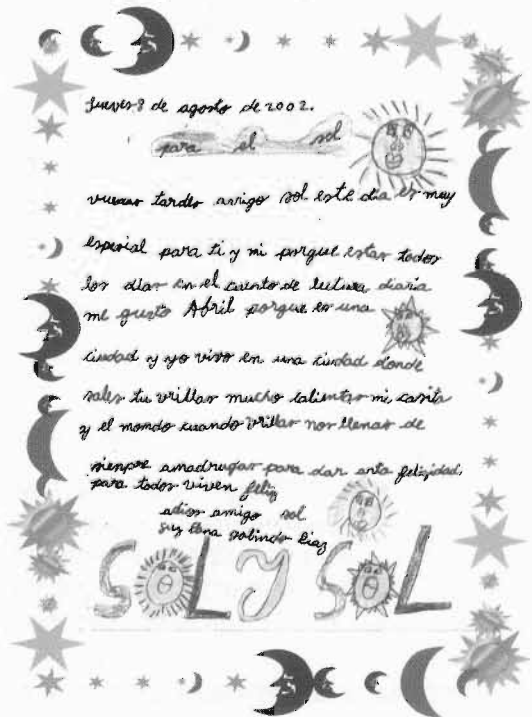 Jueves 8 de agosto de 2002.
para el sol
vuenas tardes amigo sol este dia es muy
especial para ti y mi porque estas todos
los dias en el cuento de lectura diaria
me gusto Abril porque es una
ciudad y yo vivo en una ciudad donde
sales tu vrillas mucho calientas mi casita
y el mondo cuando vrillas nos llenas de
sienpre amadrugas para dar anta felizidad,
para todos viven feliz
adios amigo sol
soy galindo Diaz
SOL Y SOL